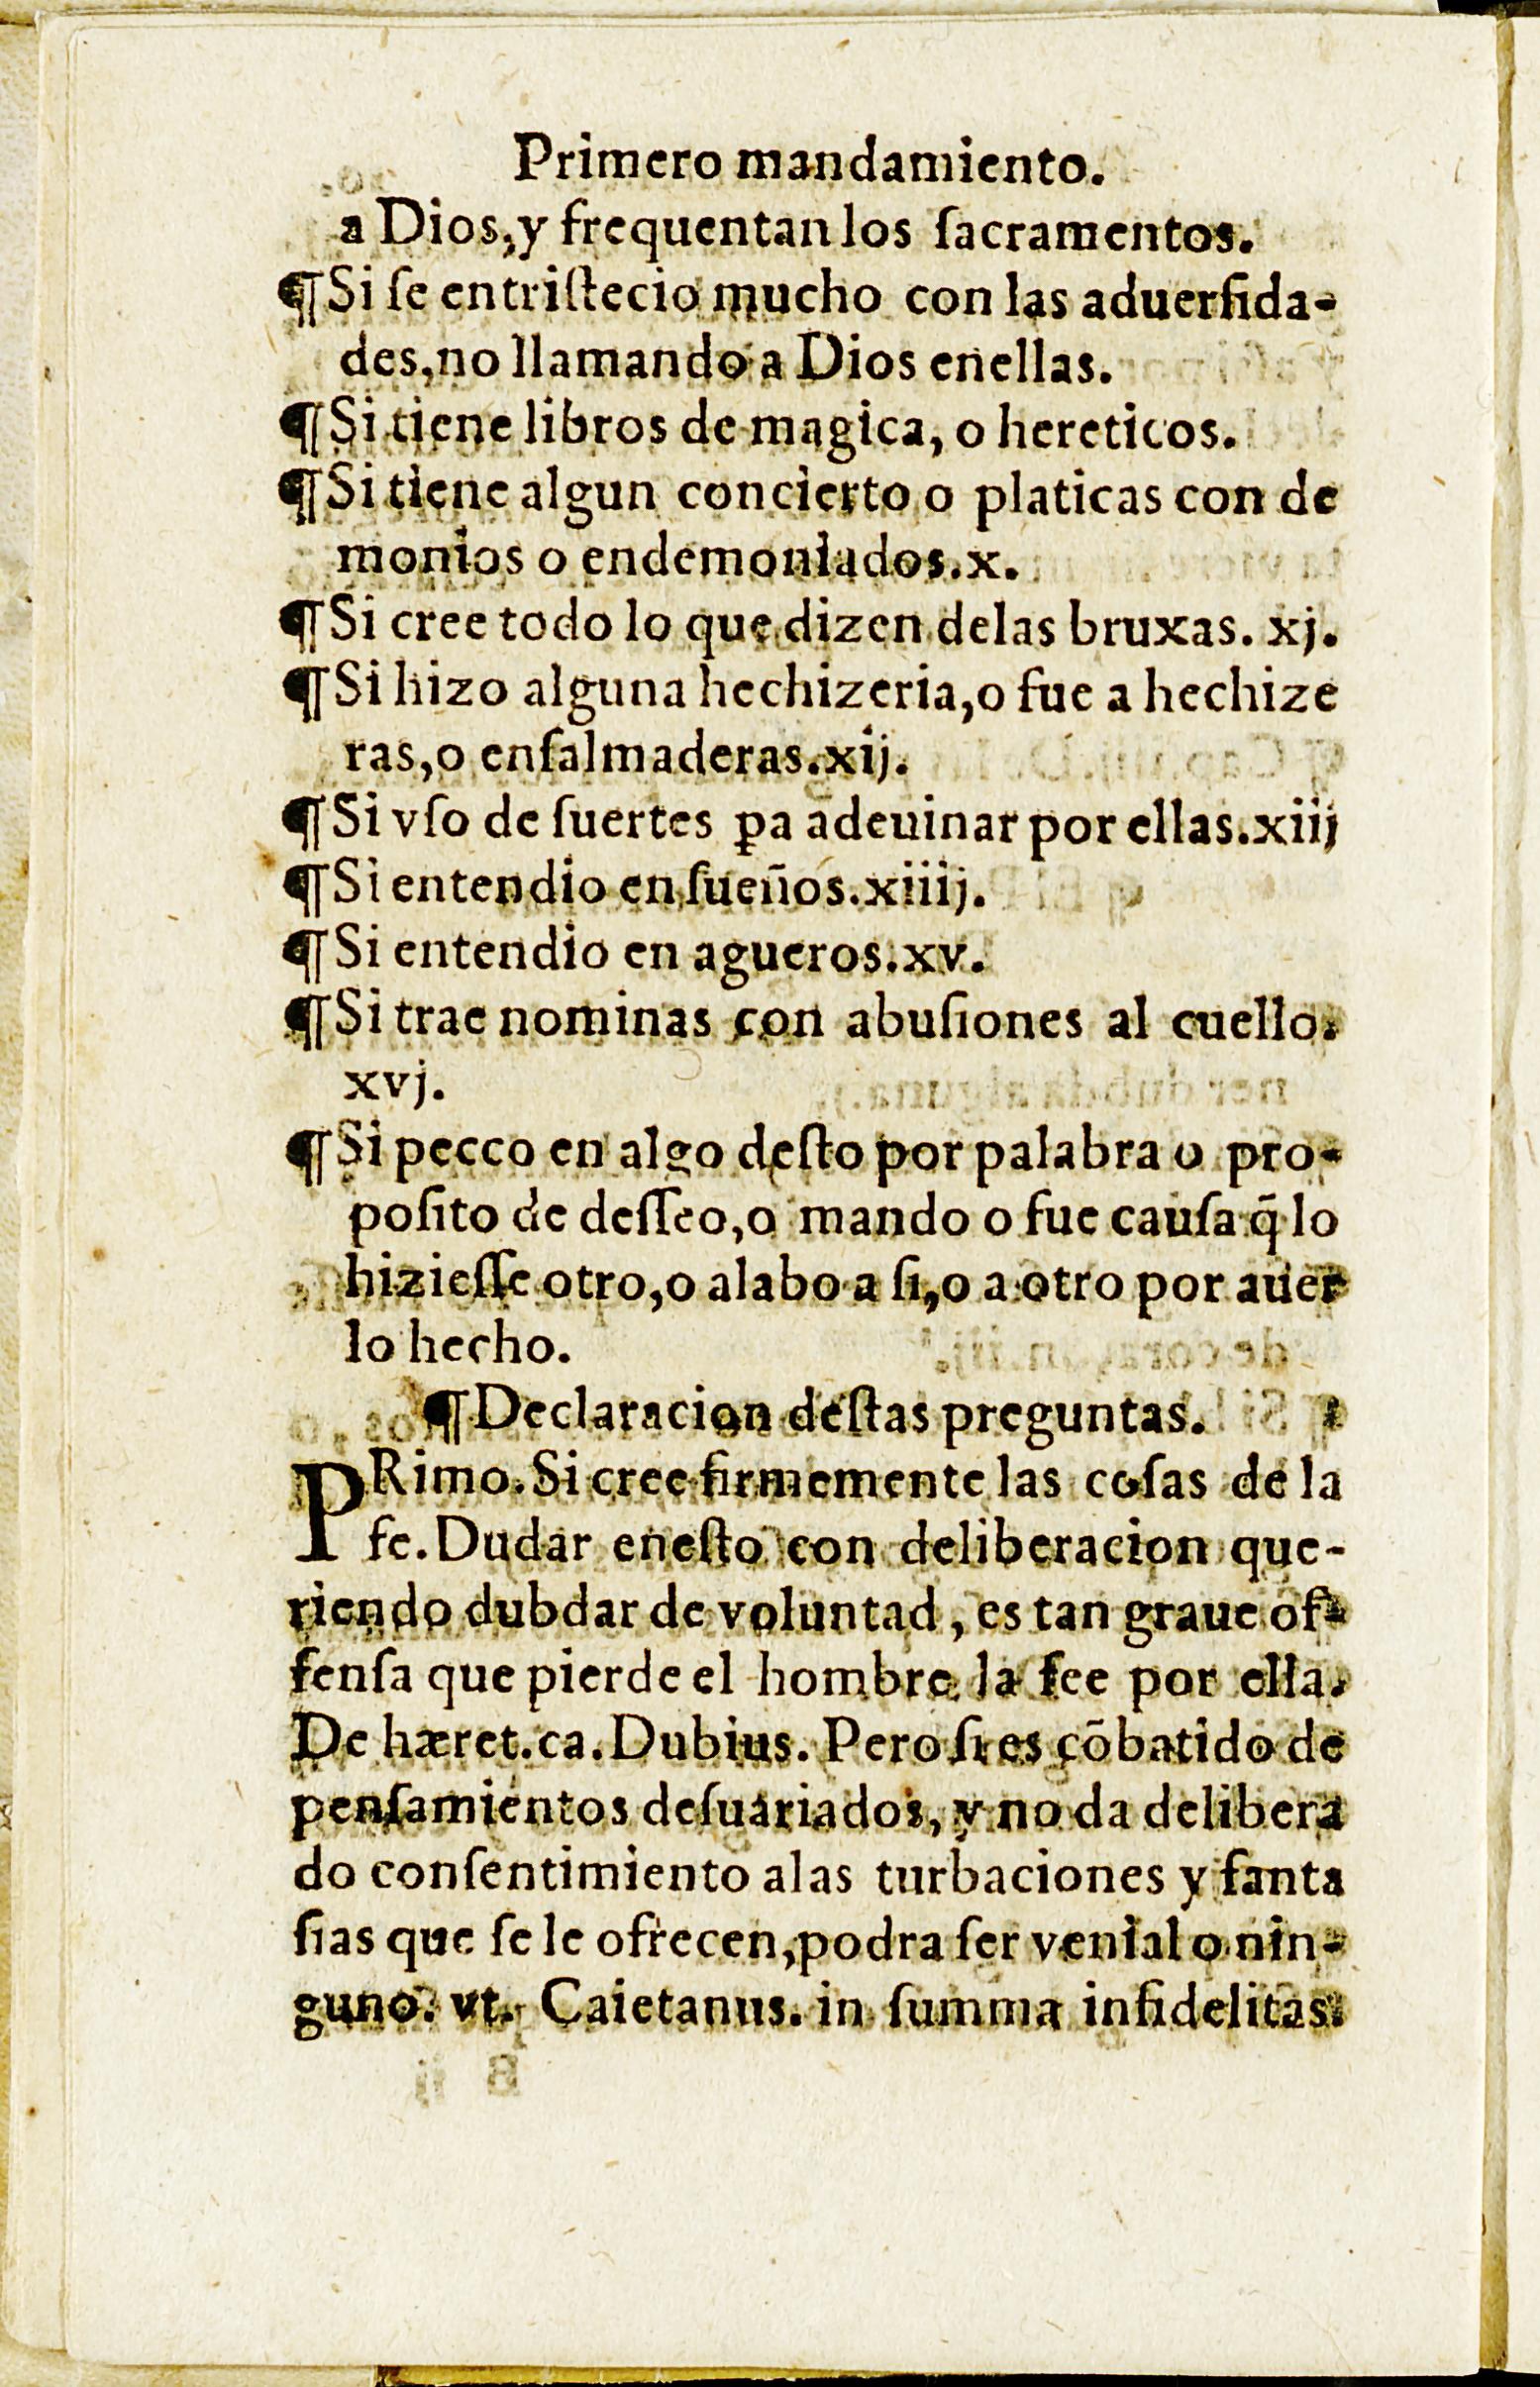 Primero mandamiento.
a Dios,y frequentan los ſacramentos.
¶Si ſe entriſtecio mucho con las aduerſida-
des,no llamando a Dios enellas.
¶Si tiene libros de magica, o hereticos.
¶Si tiene algun concierto o platicas con de
monios o endemoniados.x.
¶Si cree todo lo que dizen delas bruxas. xj.
¶Si hizo alguna hechizeria,o fue a hechize
ras,o enſalmaderas.xij.
¶Si vſo de ſuertes ꝑa adeuinar por ellas.xiij
¶Si entendio en ſueños.xiiij.
¶Si entendio en agueros.xv.
¶Si trae nominas con abuſiones al cuello.
xvj.
¶Si pecco en algo deſto por palabra o pro-
poſito de deſſeo,o mando o fue cauſa q̃ lo
hizieſſe otro,o alabo a ſi,o a otro por auer
lo hecho.
¶Declaracion deſtas preguntas.
PRimo.Si cree firmemente las coſas de la
fe.Dudar eneſto con deliberacion que-
riendo dubdar de voluntad, es tan graue of-
fenſa que pierde el hombre la fee por ella.
De hæret.ca.Dubius. Pero ſi es cõbatido de
penſamientos deſuariados, y no da delibera
do conſentimiento alas turbaciones y fanta
ſias que ſe le ofrecen,podra ſer venial o nin-
guno. vt. Caietanus. in ſumma infidelitas.